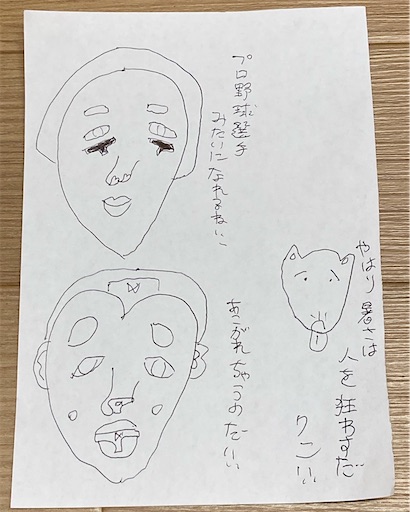 プロ野球選手
みたいになれるねい、
やはり暑さは
人を狂わすだ
あこがれちゃうのだいい